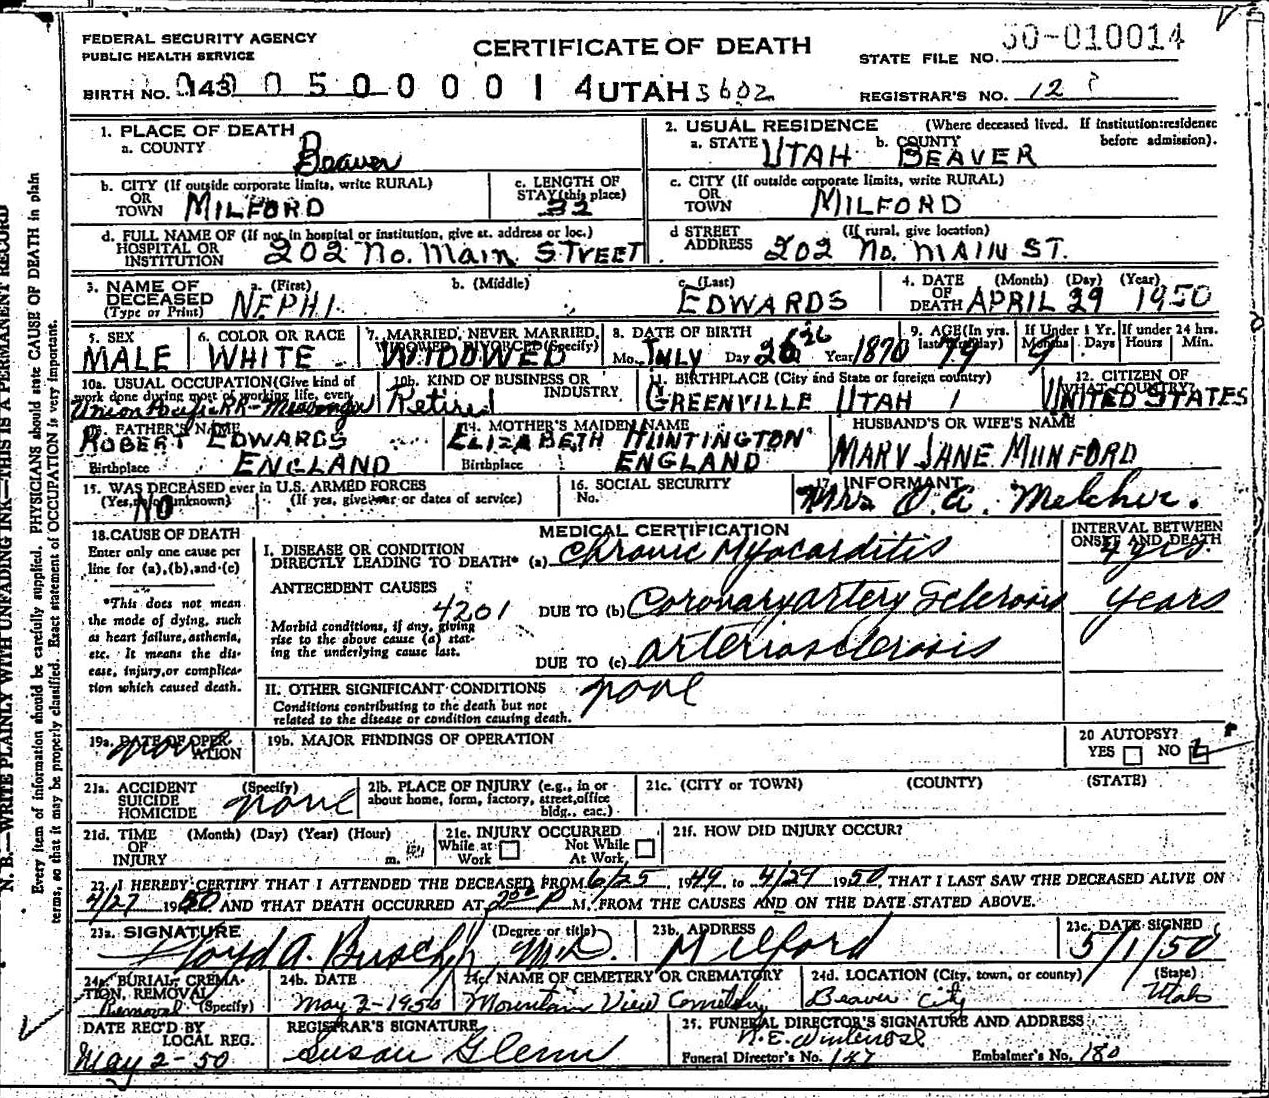 FEDERAL SECURITY AGENCY
PUBLIC HEALTH SERVICE
CERTIFICATE OF DEATH
STATE FILE NO. 50-010014
BIRTH NO. 143 0 5 0 0 0 0 1 4 UTAH 3602
REGISTRAR'S NO. 12
1. PLACE OF DEATH
a. COUNTY Beaver
2. USUAL RESIDENCE (Where deceased lived. If institution:residence before admission).
a. STATE UTAH b. COUNTY BEAVER
b. CITY (If outside corporate limits, write RURAL)
OR
TOWN MILFORD
c. LENGTH OF
STAY (this place)
32
c. CITY (If outside corporate limits, write RURAL)
OR
TOWN MILFORD
d. FULL NAME OF (If not in hospital or institution, give st. address or loc.)
HOSPITAL OR
INSTITUTION 202 No. Main STREET
d STREET (If rural, give location)
ADDRESS 202 No. MAIN ST.
3. NAME OF DECEASED (Type or Print)
a. (First) NEPHI
b. (Middle)
c. (Last) EDWARDS
4. DATE OF DEATH (Month) (Day) (Year)
APRIL 29 1950
5. SEX
MALE
6. COLOR OR RACE
WHITE
7. MARRIED, NEVER MARRIED,
WIDOWED, DIVORCED (Specify)
WIDOWED
8. DATE OF BIRTH
Mo. July Day 26 Year 1870
9. AGE (In yrs. last birthday) 79
If Under 1 Yr. Months Days
9
If under 24 hrs. Hours Min.
10a. USUAL OCCUPATION (Give kind of
work done during most of working life, even
Union Pacific RR-Messenger
10b. KIND OF BUSINESS OR
INDUSTRY
Retired
11. BIRTHPLACE (City and State or foreign country)
GREENVILLE UTAH
12. CITIZEN OF
WHAT COUNTRY?
UNITED STATES
13. FATHER'S NAME
ROBERT EDWARDS
Birthplace ENGLAND
14. MOTHER'S MAIDEN NAME
ELIZABETH HUNTINGTON
Birthplace ENGLAND
HUSBAND'S OR WIFE'S NAME
MARY JANE MUNFORD
15. WAS DECEASED ever in U.S. ARMED FORCES
(Yes, no, unknown) (If yes, give war or dates of service)
NO
16. SOCIAL SECURITY
No.
17. INFORMANT
Mrs O.A. Melcher.
18. CAUSE OF DEATH
Enter only one cause per
line for (a), (b), and (c)
*This does not mean
the mode of dying, such
as heart failure, asthenia,
etc. It means the dis-
ease, injury, or complica-
tion which caused death.
MEDICAL CERTIFICATION
INTERVAL BETWEEN
ONSET AND DEATH
I. DISEASE OR CONDITION
DIRECTLY LEADING TO DEATH* (a) Chronic Myocarditis
4 yrs.
ANTECEDENT CAUSES
4201
Morbid conditions, if any, giving
rise to the above cause (a) stat-
ing the underlying cause last.
DUE TO (b) Coronary artery Sclerosis
years
DUE TO (c) arteriosclerosis
II. OTHER SIGNIFICANT CONDITIONS
Conditions contributing to the death but not
related to the disease or condition causing death.
none
19a. DATE OF OPER-
ATION
none
19b. MAJOR FINDINGS OF OPERATION
20 AUTOPSY?
YES NO
21a. ACCIDENT (Specify)
SUICIDE
HOMICIDE
none
21b. PLACE OF INJURY (e.g., in or
about home, form, factory, street, office
bldg., eac.)
21c. (CITY or TOWN) (COUNTY) (STATE)
21d. TIME (Month) (Day) (Year) (Hour)
OF
INJURY m.
21e. INJURY OCCURRED
While at Work Not While At Work
21f. HOW DID INJURY OCCUR?
22. I HEREBY CERTIFY THAT I ATTENDED THE DECEASED FROM 6/25 1949, to 4/29 1950, THAT I LAST SAW THE DECEASED ALIVE ON
4/27 1950 AND THAT DEATH OCCURRED AT P M. FROM THE CAUSES AND ON THE DATE STATED ABOVE.
23a. SIGNATURE (Degree or title)
M.D.
23b. ADDRESS
Milford
23c. DATE SIGNED
5/1/50
24a. BURIAL, CREMA-
TION, REMOVAL
(Specify)
Removal
24b. DATE
May 2-1950
24c. NAME OF CEMETERY OR CREMATORY
Mountain View Cemetery
24d. LOCATION (City, town, or county) (State)
Beaver City Utah
DATE REC'D BY
LOCAL REG.
May 2-50
REGISTRAR'S SIGNATURE
Susan Glenn
25. FUNERAL DIRECTOR'S SIGNATURE AND ADDRESS
Funeral Director's No. 147 Embalmer's No. 180
N. B.—WRITE PLAINLY WITH UNFADING INK—THIS IS A PERMANENT RECORD
Every item of information should be carefully supplied. PHYSICIANS should state CAUSE OF DEATH in plain
terms, so that it may be properly classified. Exact statement of OCCUPATION is very important.